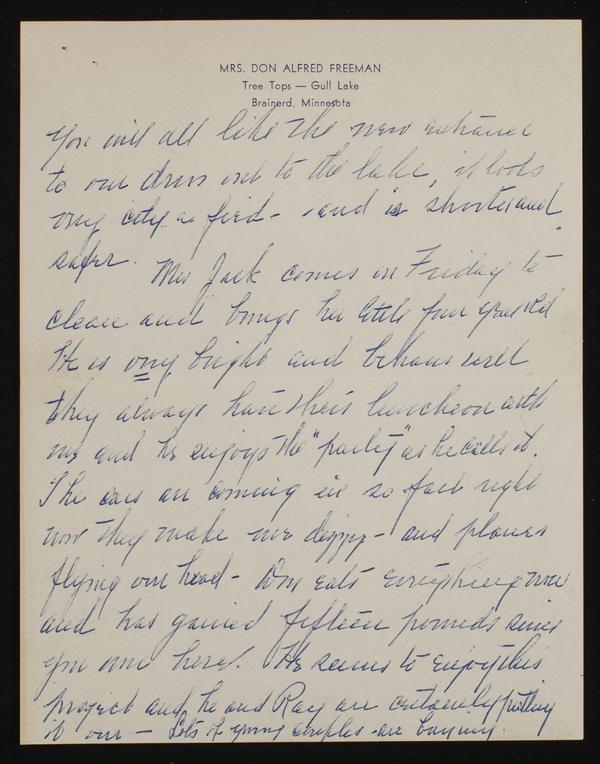 MRS. DON ALFRED FREEMAN
Tree Tops — Gull Lake
Brainerd, Minnesota
You will all like the new entrance
to our drive out to the lake, it looks
very city-a-fied - and is shorter and
safer. Mrs Jack comes on Friday to
clean and brings her little four year old
He is very bright and behaves well
they always have their luncheon with
me and he enjoys the "party" as he calls it.
The cars are coming in so fast right
now they make me dizzy - and planes
flying over head - Don eats everything now
and has gained fifteen pounds since
you were here. He seems to enjoy this
project and he and Ray are certainly putting
it over - Lots of young couples are buying.